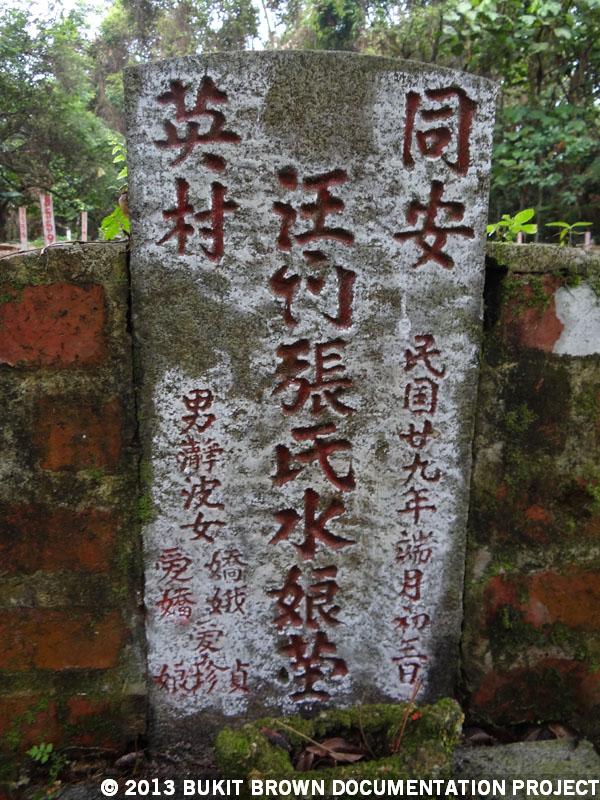 同安
民国廿九年端月初三日
汪门張氏水娘茔
英村
男瀞波女
嬌娥
爱珍貞
愛嬌
娘
© 2013 BUKIT BROWN DOCUMENTATION PROJECT